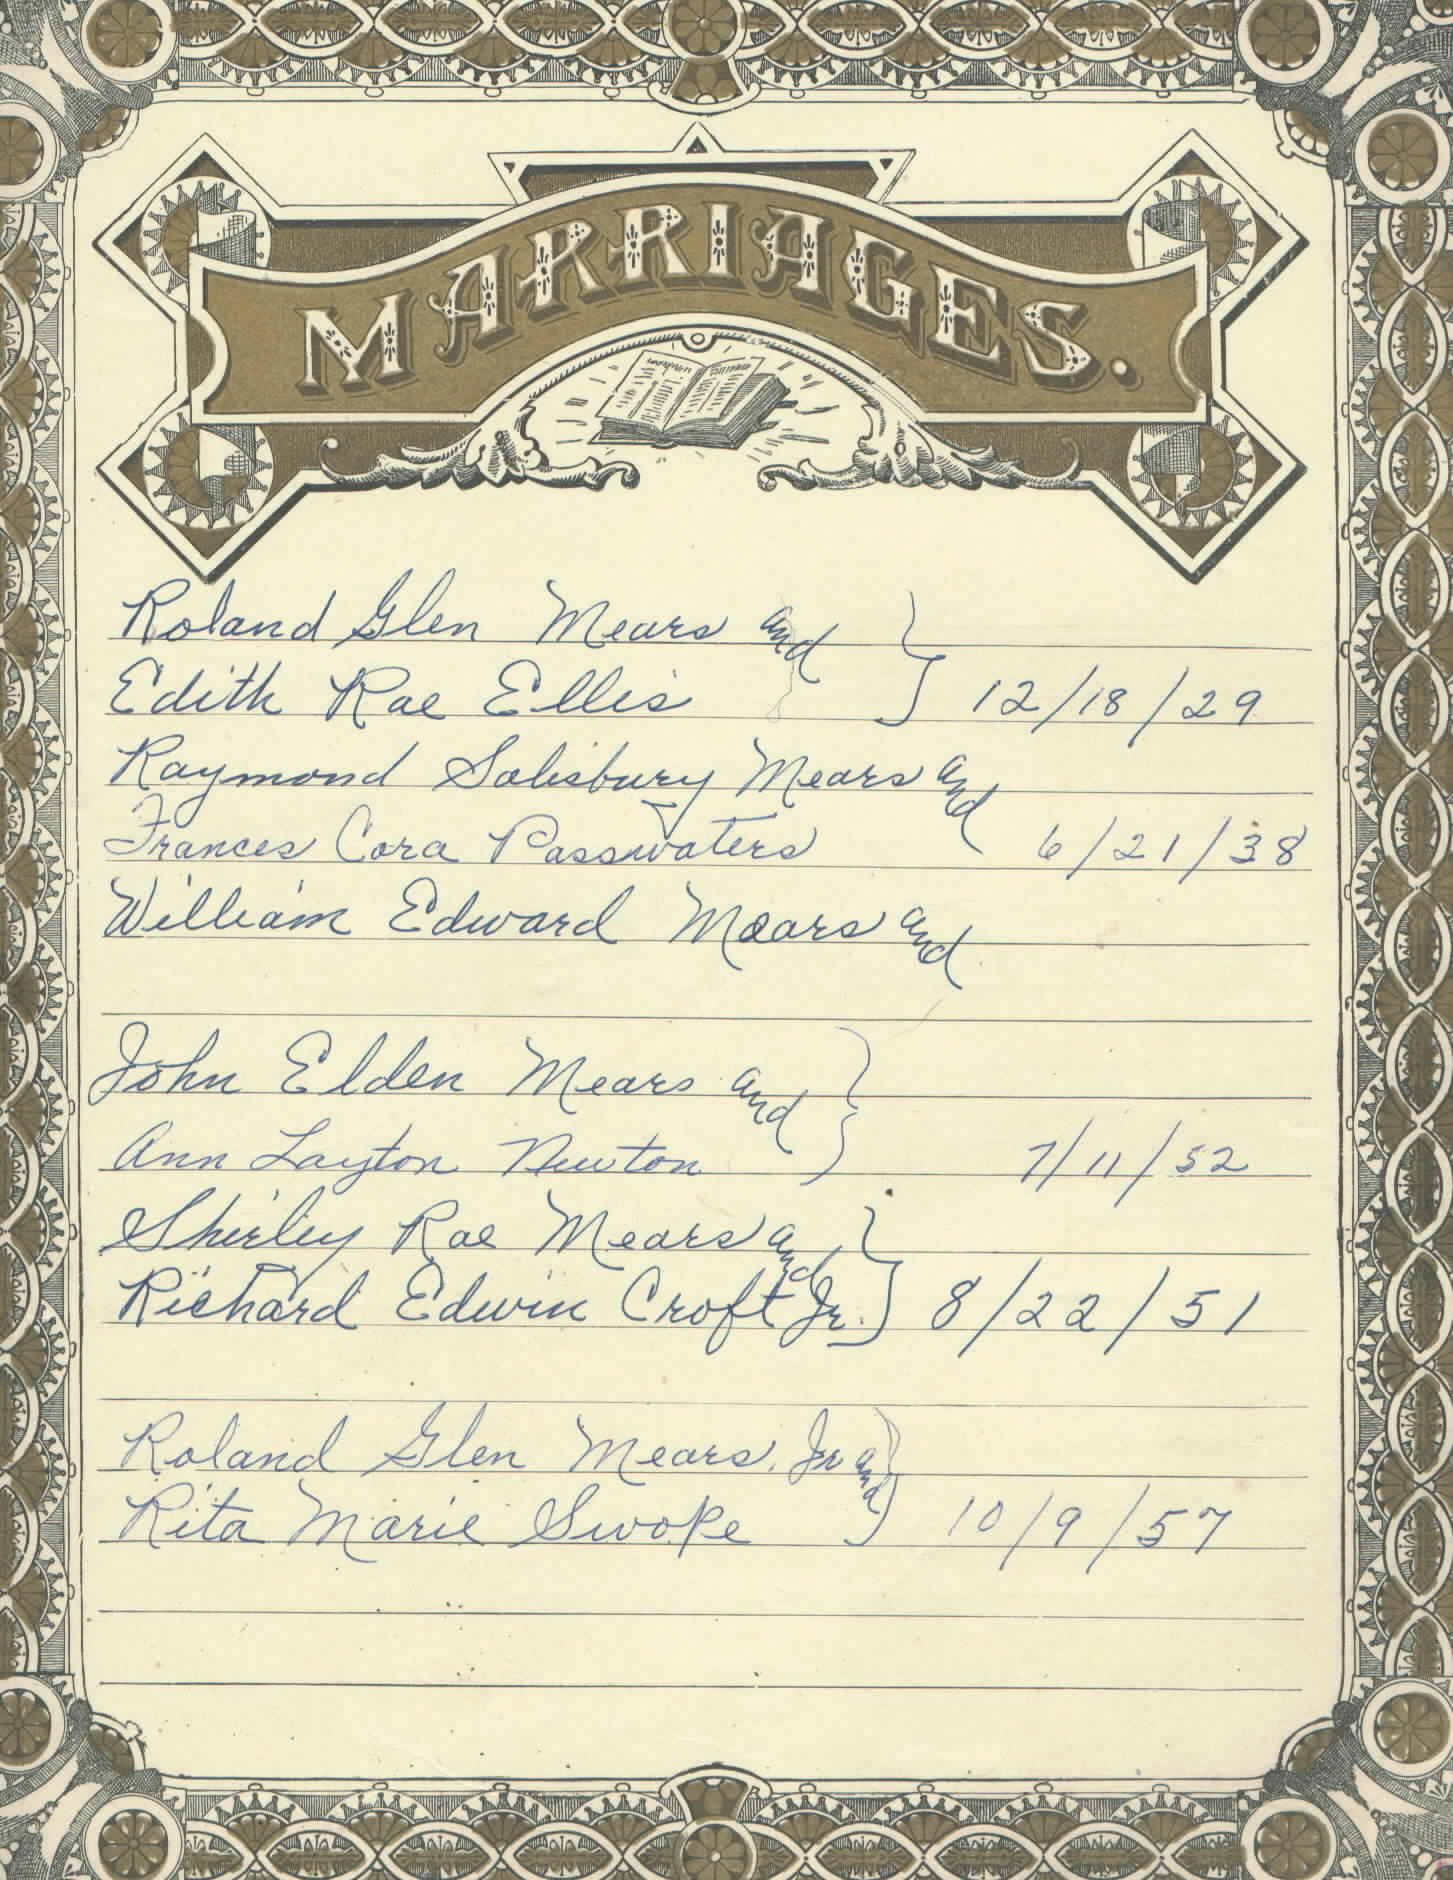 MARRIAGES.
Roland Glen Mears and
Edith Rae Ellis 12/18/29
Raymond Salisbury Mears and
Frances Cora Passwaters 6/21/38
William Edward Mears and
John Elden Mears and
Ann Layton Newton 7/11/52
Shirley Rae Mears and
Richard Edwin Croft Jr. 8/22/51
Roland Glen Mears, Jr and
Rita Marie Swope 10/9/57